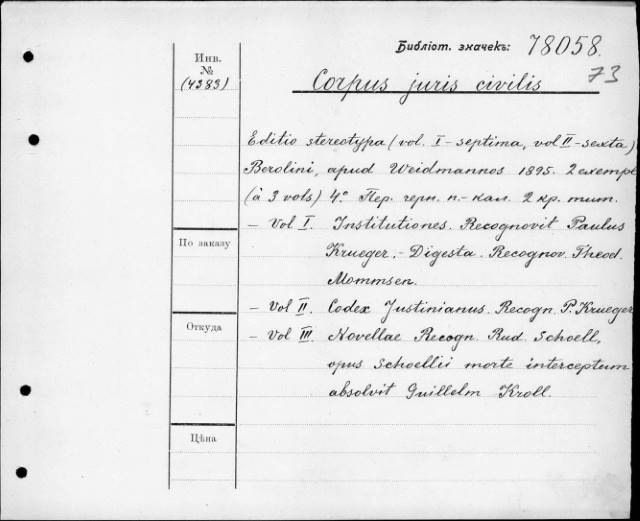 Библіот. значекъ: 78058.
73
Инв.
№
(4383)
Corpus juris civilis
Editio stereotypa (vol. I - septima, vol II - sexta)
Berolini, apud Weidmannos 1895. 2 exempl
(à 3 vols) 4.° Пер. черн. п.-кал. 2 кр. тит.
— Vol I. Institutiones. Recognovit Paulus
Krueger. - Digesta. Recognov. Theod.
Mommsen.
— Vol II. Codex Justinianus. Recogn. P. Krueger
— Vol III. Novellae Recogn. Rud. Schoell,
opus Schoellii morte interceptum
absolvit Guillelm Kroll.
По заказу
Откуда
Цѣна